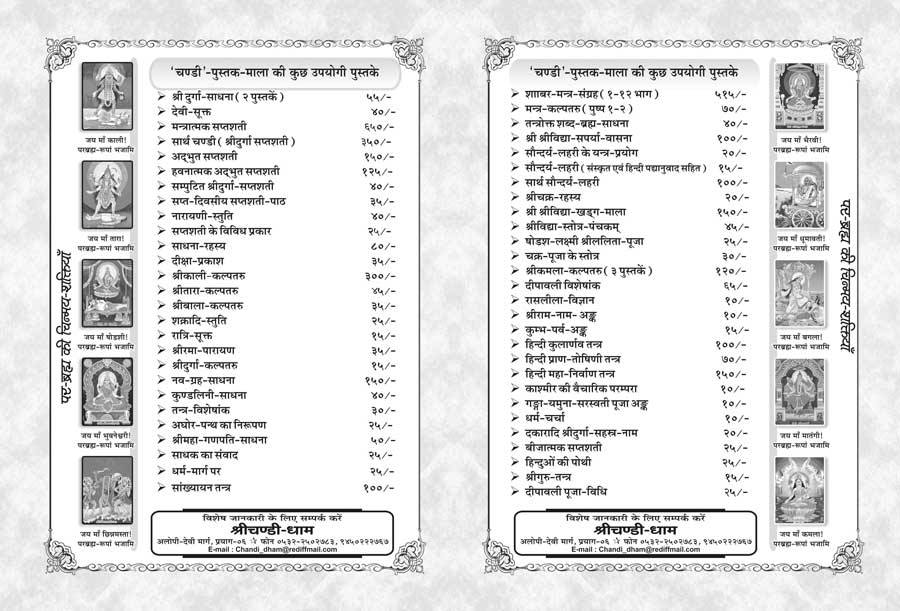 'चण्डी'-पुस्तक-माला की कुछ उपयोगी पुस्तकें
➤ श्री दुर्गा-साधना ( २ पुस्तकें ) ५५/-
➤ देवी-सूक्त ४०/-
➤ मन्त्रात्मक सप्तशती ६५०/-
➤ सार्थ चण्डी ( श्रीदुर्गा सप्तशती ) ३५०/-
➤ अद्भुत सप्तशती १५०/-
➤ हवनात्मक अद्भुत सप्तशती १२५/-
➤ सम्पुटित श्रीदुर्गा-सप्तशती ४०/-
➤ सप्त-दिवसीय सप्तशती-पाठ ३५/-
➤ नारायणी-स्तुति ४०/-
➤ सप्तशती के विविध प्रकार २५/-
➤ साधना-रहस्य ८०/-
➤ दीक्षा-प्रकाश ३५/-
➤ श्रीकाली-कल्पतरु ३००/-
➤ श्रीतारा-कल्पतरु ४५/-
➤ श्रीबाला-कल्पतरु ३५/-
➤ शक्रादि-स्तुति २५/-
➤ रात्रि-सूक्त १५/-
➤ श्रीरमा-पारायण ३५/-
➤ श्रीदुर्गा-कल्पतरु १५/-
➤ नव-ग्रह-साधना १५०/-
➤ कुण्डलिनी-साधना ४०/-
➤ तन्त्र-विशेषांक ३०/-
➤ अघोर-पन्थ का निरूपण २५/-
➤ श्रीमहा-गणपति-साधना ५०/-
➤ साधक का संवाद २५/-
➤ धर्म-मार्ग पर २५/-
➤ सांख्यायन तन्त्र १००/-
विशेष जानकारी के लिए सम्पर्क करें
श्रीचण्डी-धाम
अलोपी-देवी मार्ग, प्रयाग-०६ ☆ फोन ०५३२-२५०२७८३, ९४५०२२२७६७
E-mail : Chandi_dham@rediffmail.com
जय माँ काली!
परब्रह्म-रूपां भजामि
जय माँ तारा!
परब्रह्म-रूपां भजामि
जय माँ षोडशी!
परब्रह्म-रूपां भजामि
जय माँ भुवनेश्वरी!
परब्रह्म-रूपां भजामि
जय माँ छिन्नमस्ता!
परब्रह्म-रूपां भजामि
पर-ब्रह्म की चिन्मय-शक्तियाँ
'चण्डी'-पुस्तक-माला की कुछ उपयोगी पुस्तकें
➤ शााबर-मन्त्र-संग्रह ( १-१२ भाग ) ५१५/-
➤ मन्त्र-कल्पतरु ( पुष्प १-२ ) ७०/-
➤ तन्त्रोक्त शब्द-ब्रह्म-साधना ४०/-
➤ श्री श्रीविद्या-सपर्या-वासना १००/-
➤ सौन्दर्य-लहरी के यन्त्र-प्रयोग २०/-
➤ सौन्दर्य-लहरी ( संस्कृत एवं हिन्दी पद्यानुवाद सहित ) १५/-
➤ सार्थ सौन्दर्य-लहरी १००/-
➤ श्रीचक्र-रहस्य २०/-
➤ श्री श्रीविद्या-खड्ग-माला १५०/-
➤ श्रीविद्या-स्तोत्र-पंचकम् ४५/-
➤ षोडश-लक्ष्मी श्रीललिता-पूजा २५/-
➤ चक्र-पूजा के स्तोत्र ३०/-
➤ श्रीकमला-कल्पतरु ( ३ पुस्तकें ) १२०/-
➤ दीपावली विशेषांक ६५/-
➤ रासलीला-विज्ञान १०/-
➤ श्रीराम-नाम- अङ्क १०/-
➤ कुम्भ-पर्व-अङ्क १५/-
➤ हिन्दी कुलार्णव तन्त्र १००/-
➤ हिन्दी प्राण-तोषिणी तन्त्र ७०/-
➤ हिन्दी महा-निर्वाण तन्त्र १५०/-
➤ काश्मीर की वैचारिक परम्परा १०/-
➤ गङ्गा-यमुना-सरस्वती पूजा अङ्क १०/-
➤ धर्म-चर्चा १०/-
➤ दकारादि श्रीदुर्गा-सहस्र-नाम २०/-
➤ बीजात्मक सप्तशती २५/-
➤ हिन्दुओं की पोथी २५/-
➤ श्रीगुरु-तन्त्र १५/-
➤ दीपावली पूजा-विधि २५/-
विशेष जानकारी के लिए सम्पर्क करें
श्रीचण्डी-धाम
अलोपी-देवी मार्ग, प्रयाग-०६ ☆ फोन ०५३२-२५०२७८३, ९४५०२२२७६७
E-mail : Chandi_dham@rediffmail.com
जय माँ भैरवी!
परब्रह्म-रूपां भजामि
जय माँ धूमावती!
परब्रह्म-रूपां भजामि
जय माँ बगला!
परब्रह्म-रूपां भजामि
जय माँ मातंगी!
परब्रह्म-रूपां भजामि
जय माँ कमला!
परब्रह्म-रूपां भजामि
पर-ब्रह्म की चिन्मय-शक्तियाँ